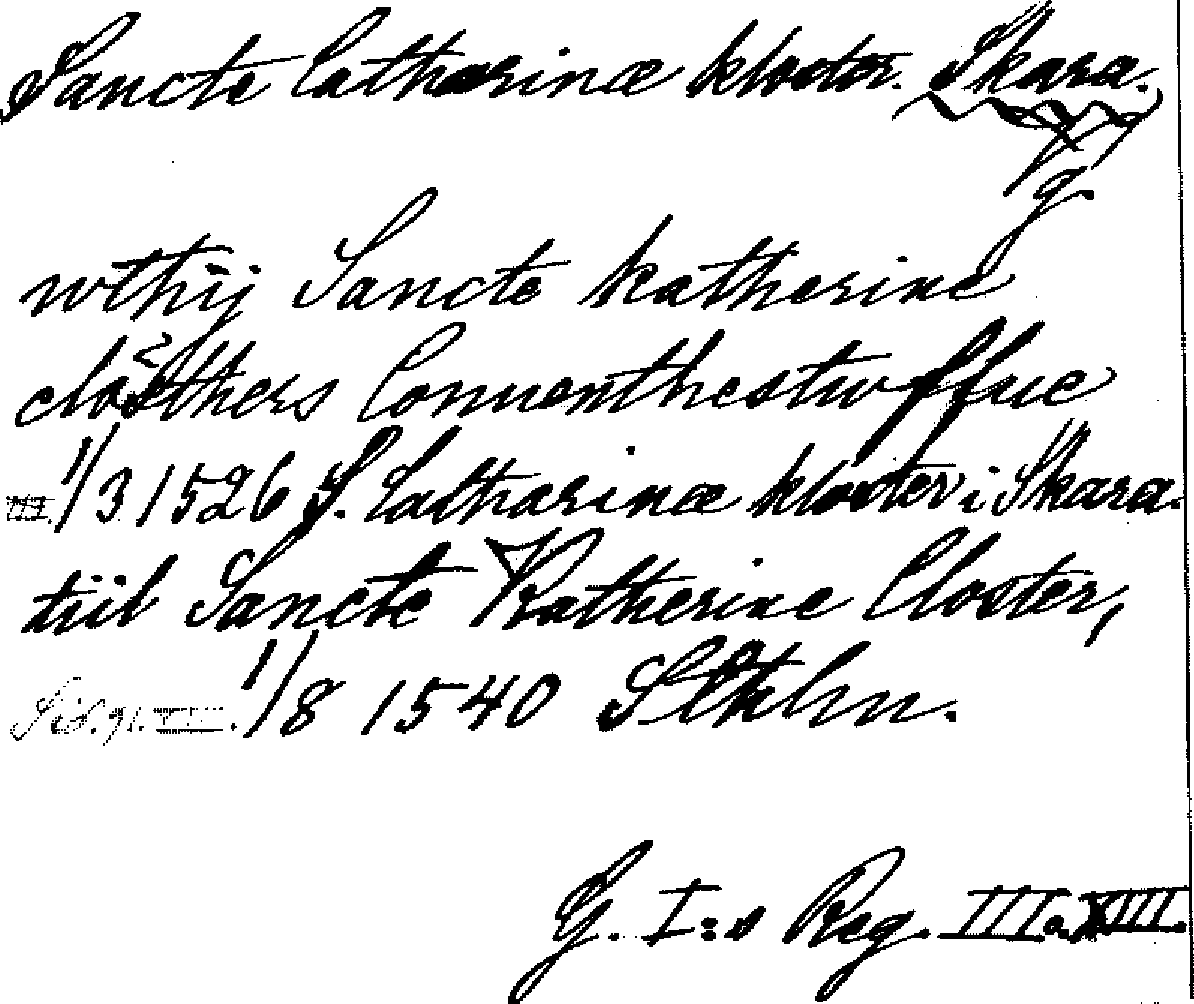 Sancte Catharinæ kloster. Skara.
g.
wthij Sancte katherine
closthers Conuenthestwffue
III. 1/3 1526 S. Catharinæ kloster i Skara.
tiil Sancte Katherine Closter,
Sid. 91. 1/8 1540 Sthlm.
G. I:s Reg. III o. XIII.